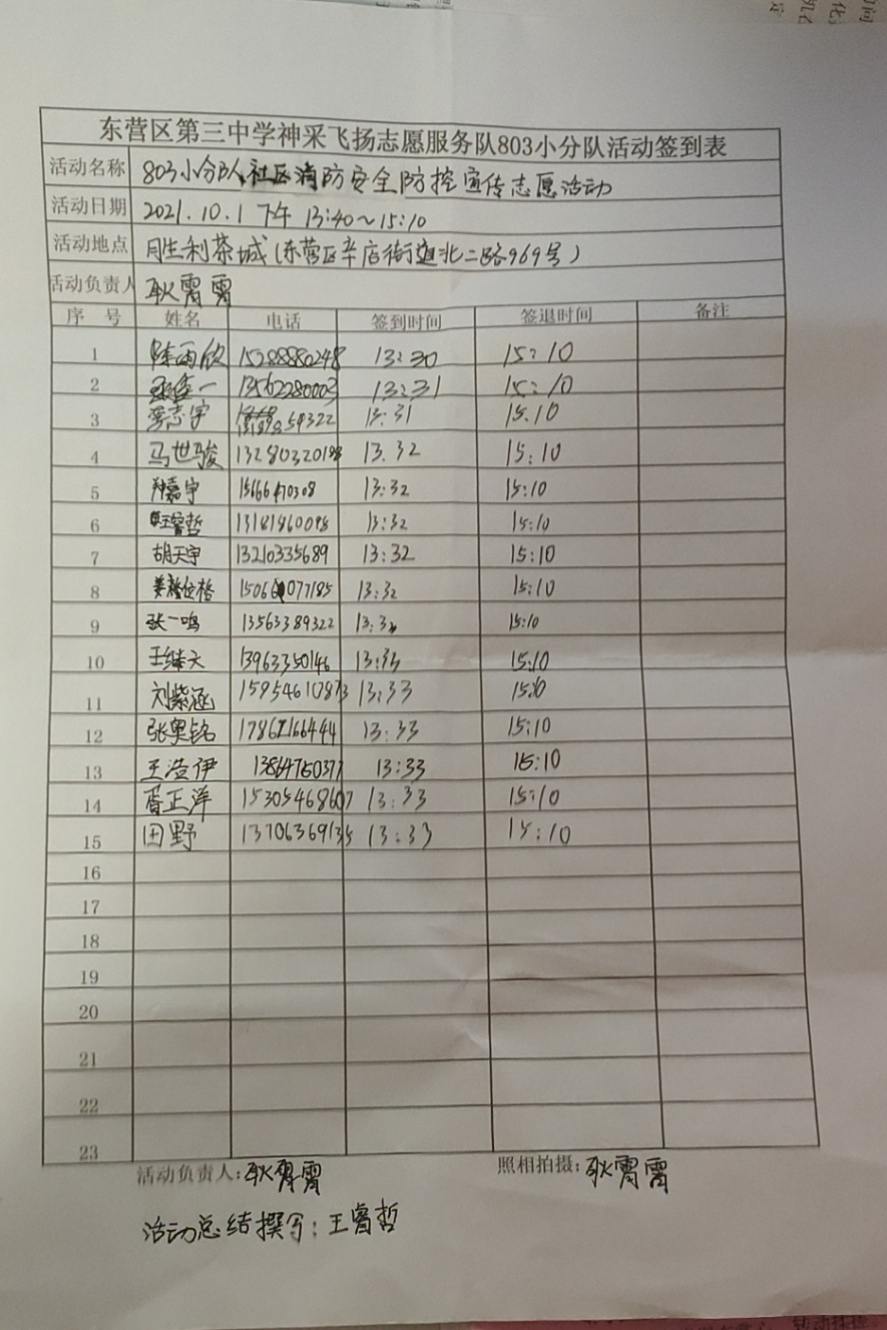 东营区第三中学神采飞扬志愿服务队803小分队活动签到表
活动名称 803小分队社区消防安全防控宣传志愿活动
活动日期 2021.10.1 下午 13:40~15:10
活动地点 胜利茶城(东营区辛店街道北二路969号)
活动负责人 耿霄霄
序 号 姓名 电话 签到时间 签退时间 备注
1 陈雨欣 15288880248 13:30 15:10
2 一 13562280003 13:31 15:10
3 志宇 13:31 15.10
4 马世骏 132803201 13.32 15:10
5 嘉宇 15166470308 13:32 15:10
6 王睿哲 13181860098 13:32 15:10
7 胡天宇 13210335689 13:32 15:10
8 姜 13:32 15:10
9 张一鸣 13563389322 13:3 15:10
10 王继天 13963350146 13:33 15:10
11 刘紫涵 15954610873 13:33 15:10
12 张奥铭 13:33 15:10
13 王浩伊 13864750377 13:33 15:10
14 胥正洋 15305468607 13:33 15:10
15 田野 13706369135 13:33 15:10
16
17
18
19
20
21
22
23
活动负责人:耿霄霄 照相拍摄:耿霄霄
活动总结撰写:王睿哲